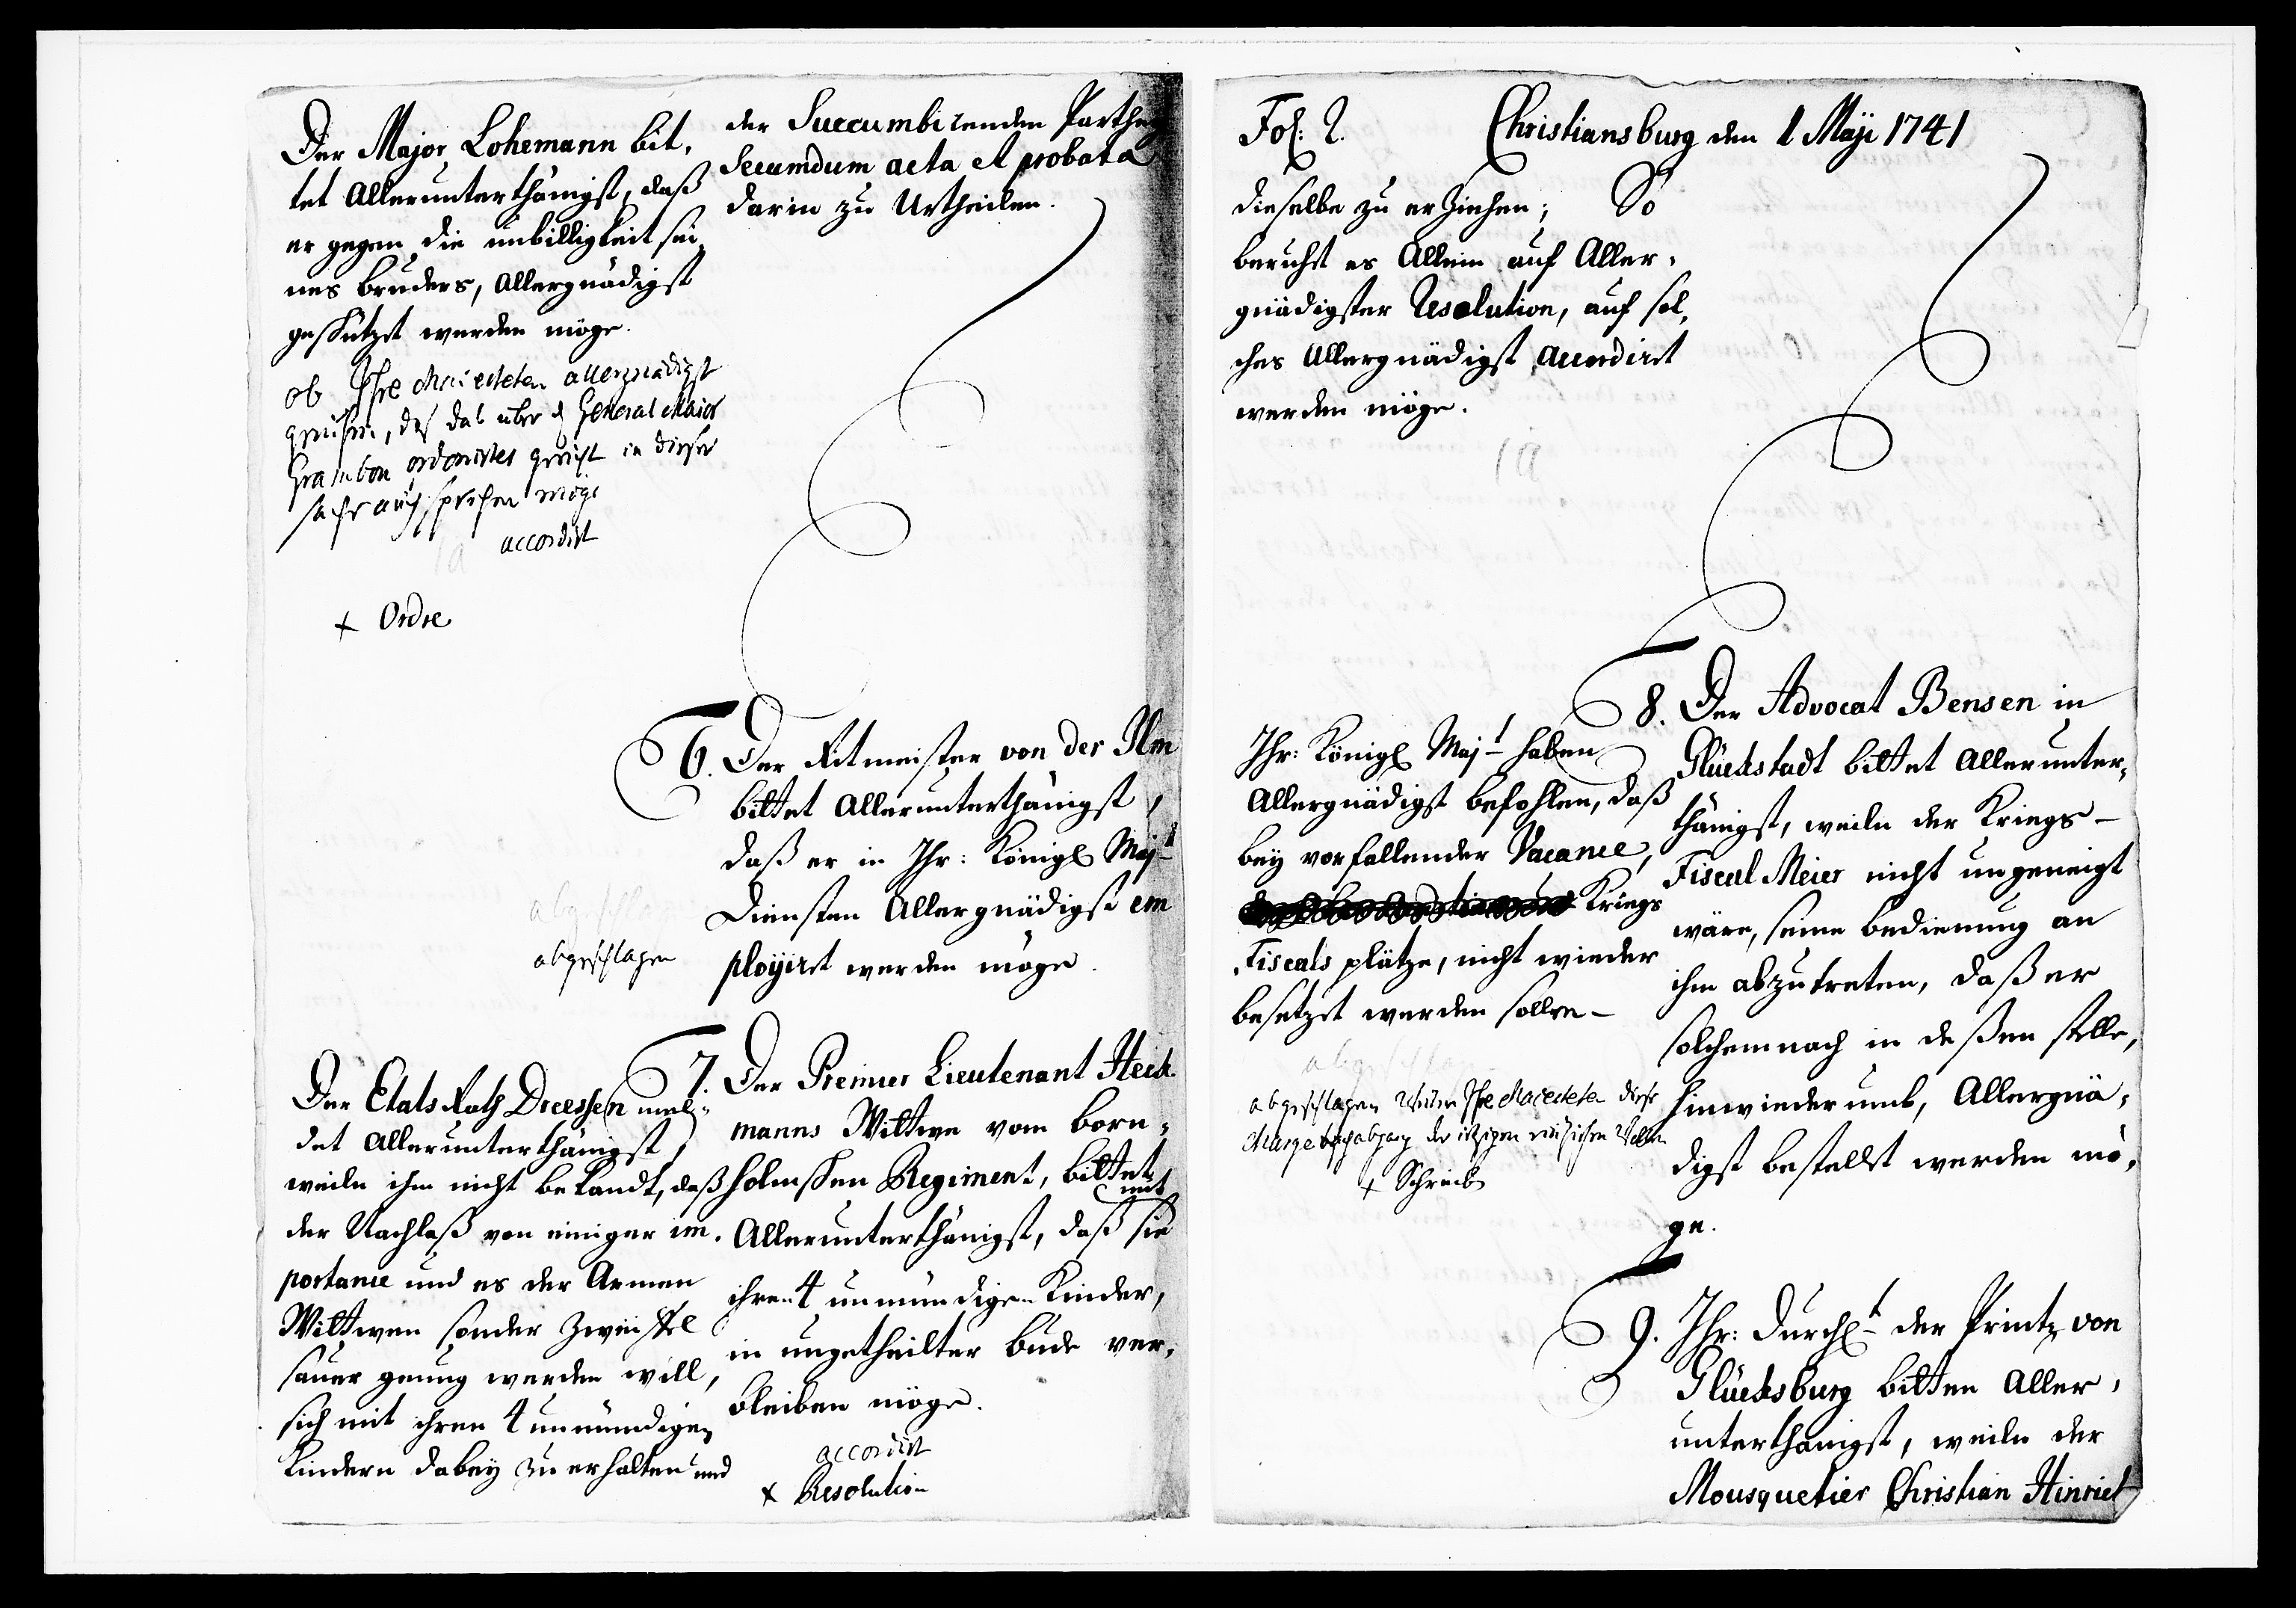 Der Major Lohemann bit,
tet Allerunterthänigst, daß
er gegen die unbilligkeit sei,
nes bruders, Allergnädigst
geschützet werden möge.
ob Ihre Maiesteten allergnädigst
, das das über General Maior
ordonirtes gericht in dieser
sache auch sprechen möge
accordirt
ia
+ Ordre
der Succumbirenden Parthey
Secumdum acta et probata
darin zu Urtheilen.
6. Der Ritmeister von der Ilm
bittet Allerunterthänigst,
daß er in Ihr: Königl Majt
Diensten Allergnädigst em
ployiret werden möge.
abgeschlagen
Der Etats Rath Dreessen mel=
det Allerunterthänigst,
weiln ihm nicht bekandt, daß
der Nachlaß von einiger im,
portance und es der Armen
Wittwen sonder Zweiffel
sauer genug werden will,
sich mit ihren 4 unmündigen
Kindern dabey zu erhalten und
7. Der Premier Lieutenant Heick
manns Wittwe vom born=
holmschen Regiment, bittet
Allerunterthänigst, daß sie mit
ihren 4 unmündigen Kinder,
in ungetheilter bude ver,
bleiben möge.
accordirt
+ Resolution
Fol: 2. Christiansburg den 1 Maji 1741
dieselbe zu erZiehen; So
beruhet es Allein auf Aller,
gnädigster Resolution, auf sol,
ches Allergnädigst accordiret
werden möge.
ia
Ihr: Königl Majt haben
Allergnädigst befohlen, daß
bey vorfallender Vacance,
Kriegs
Fiscals plätze, nicht wieder
besetzet werden sollen-
abgeschlagen Ihre Maiesteten diese
Charge nach abgang des itzigen wollen
+ Schreib
8. Der Advocat Bensen in
Glückstadt bittet Allerunter,
thänigst, weiln der Kriegs-
Fiscal Meier nicht ungeneigt
wäre, seine bedienung an
ihm abzutreten, daß er
solchemnach in deßen stelle,
hinwiederumb, Allergnä,
digst bestellet werden mö,
ge.
9. Ihr: Durchlt der Printz von
Glücksburg bitten Aller,
unterthänigst, weiln der
Mousquetier Christian Hinrich